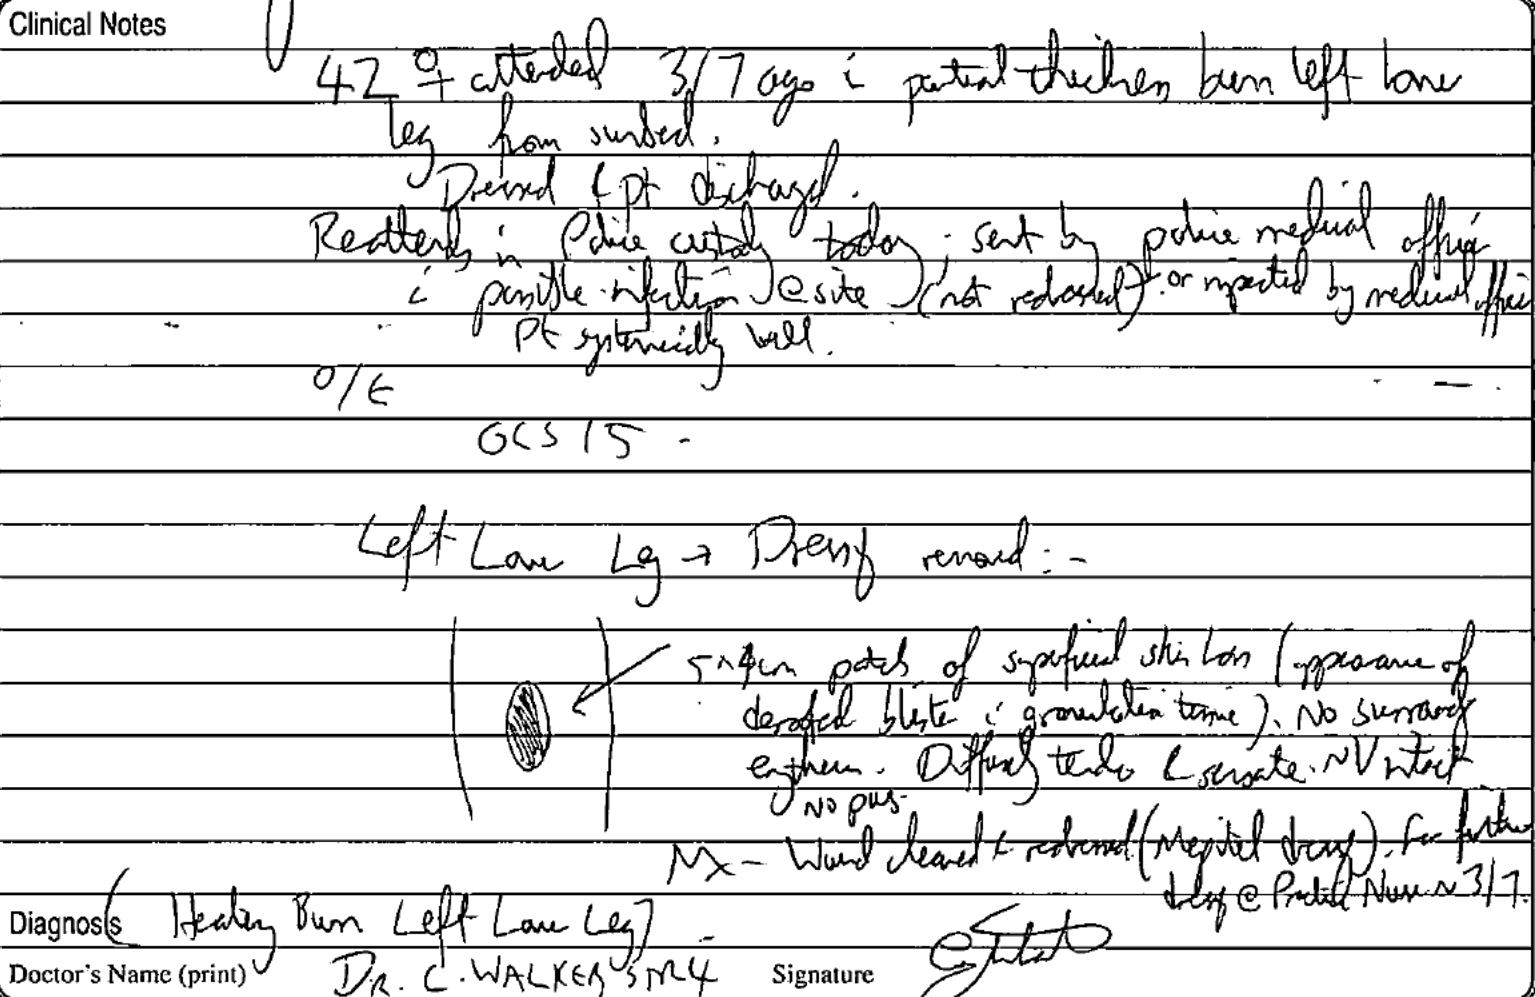 Clinical Notes
42 ♀ attended 3/7 ago c̄ partial thickness burn left lower
leg from sunbed.
Dressed & pt discharged.
Reattends in Police custody today; sent by police medical officer
c̄ possible infection @ site (not redressed) or inspected by medical officer
Pt systemically well.
O/E
GCS 15 -
Left Lower Leg → Dressing removed :-
5x4cm patch of superficial skin loss (appearance of
deroofed blister c̄ granulation tissue). No surrounding
erythema. Diffusely tender & sensate. NV intact
No pus.
Mx - Wound cleaned & redressed (Mepitel dressing). For further
dressing @ Practice Nurse in 3/7.
Diagnosis (Healing Burn Left Lower Leg)
Doctor's Name (print) DR. C. WALKER Signature